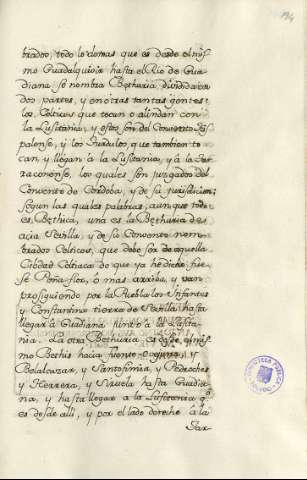 194
brados; todo lo demas que es desde el mis-
mo Guadalquivir hasta el Rio de Gua-
diana se nombra Bethuria, dividida en
dos partes, y en otras tantas gentes
los Celticos que tocan o alindan con
la Lusitania, y estos son del Convento Ispa-
lense, y los Turdulos, que tambien to-
can, y llegan à la Lusitania, y à la Tar-
raconense, los quales son juzgados del
Convento de Cordoba, y de su jurisdicion;
segun las quales palabras, aunque todo
es Bethica, una es la Bethuria de
acia Sevilla, y de su Convento nom-
brados Celticos, que debe ser de aquella
Ciudad Celtiaca de que ya he dicho fue-
se Peñaflor, o mas arriba, y van
prosiguiendo por la Puebla los Infantes
y Constantina tierra de Sevilla hasta
llegar à Guadiana junto à la Lusita-
nia. La otra Bethuria, es desde el mis-
mo Bethis hacia fuente Obejuna, y
Belalcazar, y Santofimia, y Pedroches
y Herrera, y Siruela hasta Guadia-
na, y hasta llegar à la Lusitania q.e
es desde alli, y por el lado derecho à la
Tar-
BIBLIOTECA PUBLICA
TOLEDO